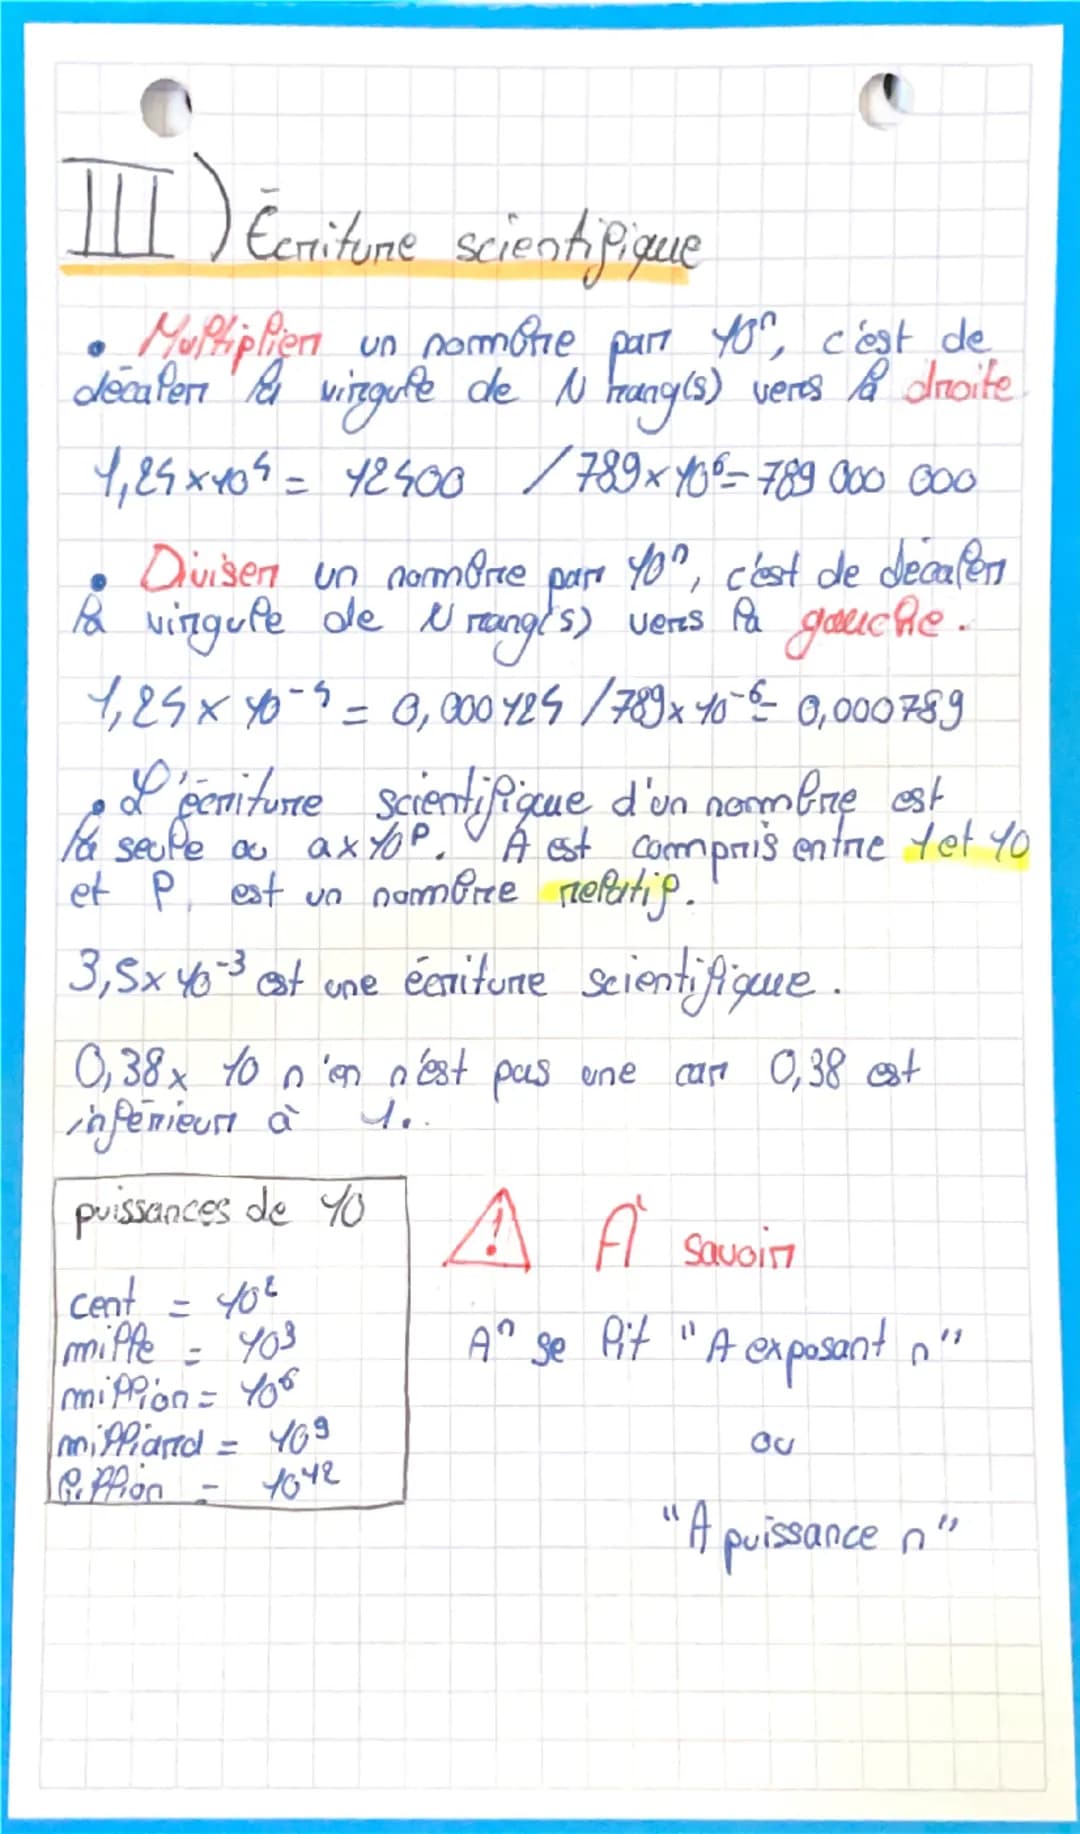 III) Écriture scientifique
• Multiplier un nombre par 10ⁿ, c'est de
décaler la virgule de N rang(s) vers la droite
1,24 x 10⁴ = 12400 / 789 x 10⁶ = 789 000 000
• Diviser un nombre par 10ⁿ, c'est de décaler
la virgule de N rang(s) vers la gauche.
1,24 x 10⁻⁴ = 0,000124 / 789 x 10⁻⁶ = 0,000789
• L'écriture scientifique d'un nombre est
la seule ou a x 10ᴾ. A est compris entre 1 et 10
et P est un nombre relatif.
3,5 x 10⁻³ est une écriture scientifique.
0,38 x 10 n'en n'est pas une car 0,38 est
inférieur à 1..
puissances de 10
cent = 10²
mille = 10³
million = 10⁶
milliard = 10⁹
billion = 10¹²
⚠ À savoir
Aⁿ se lit "A exposant n"
ou
"A puissance n"